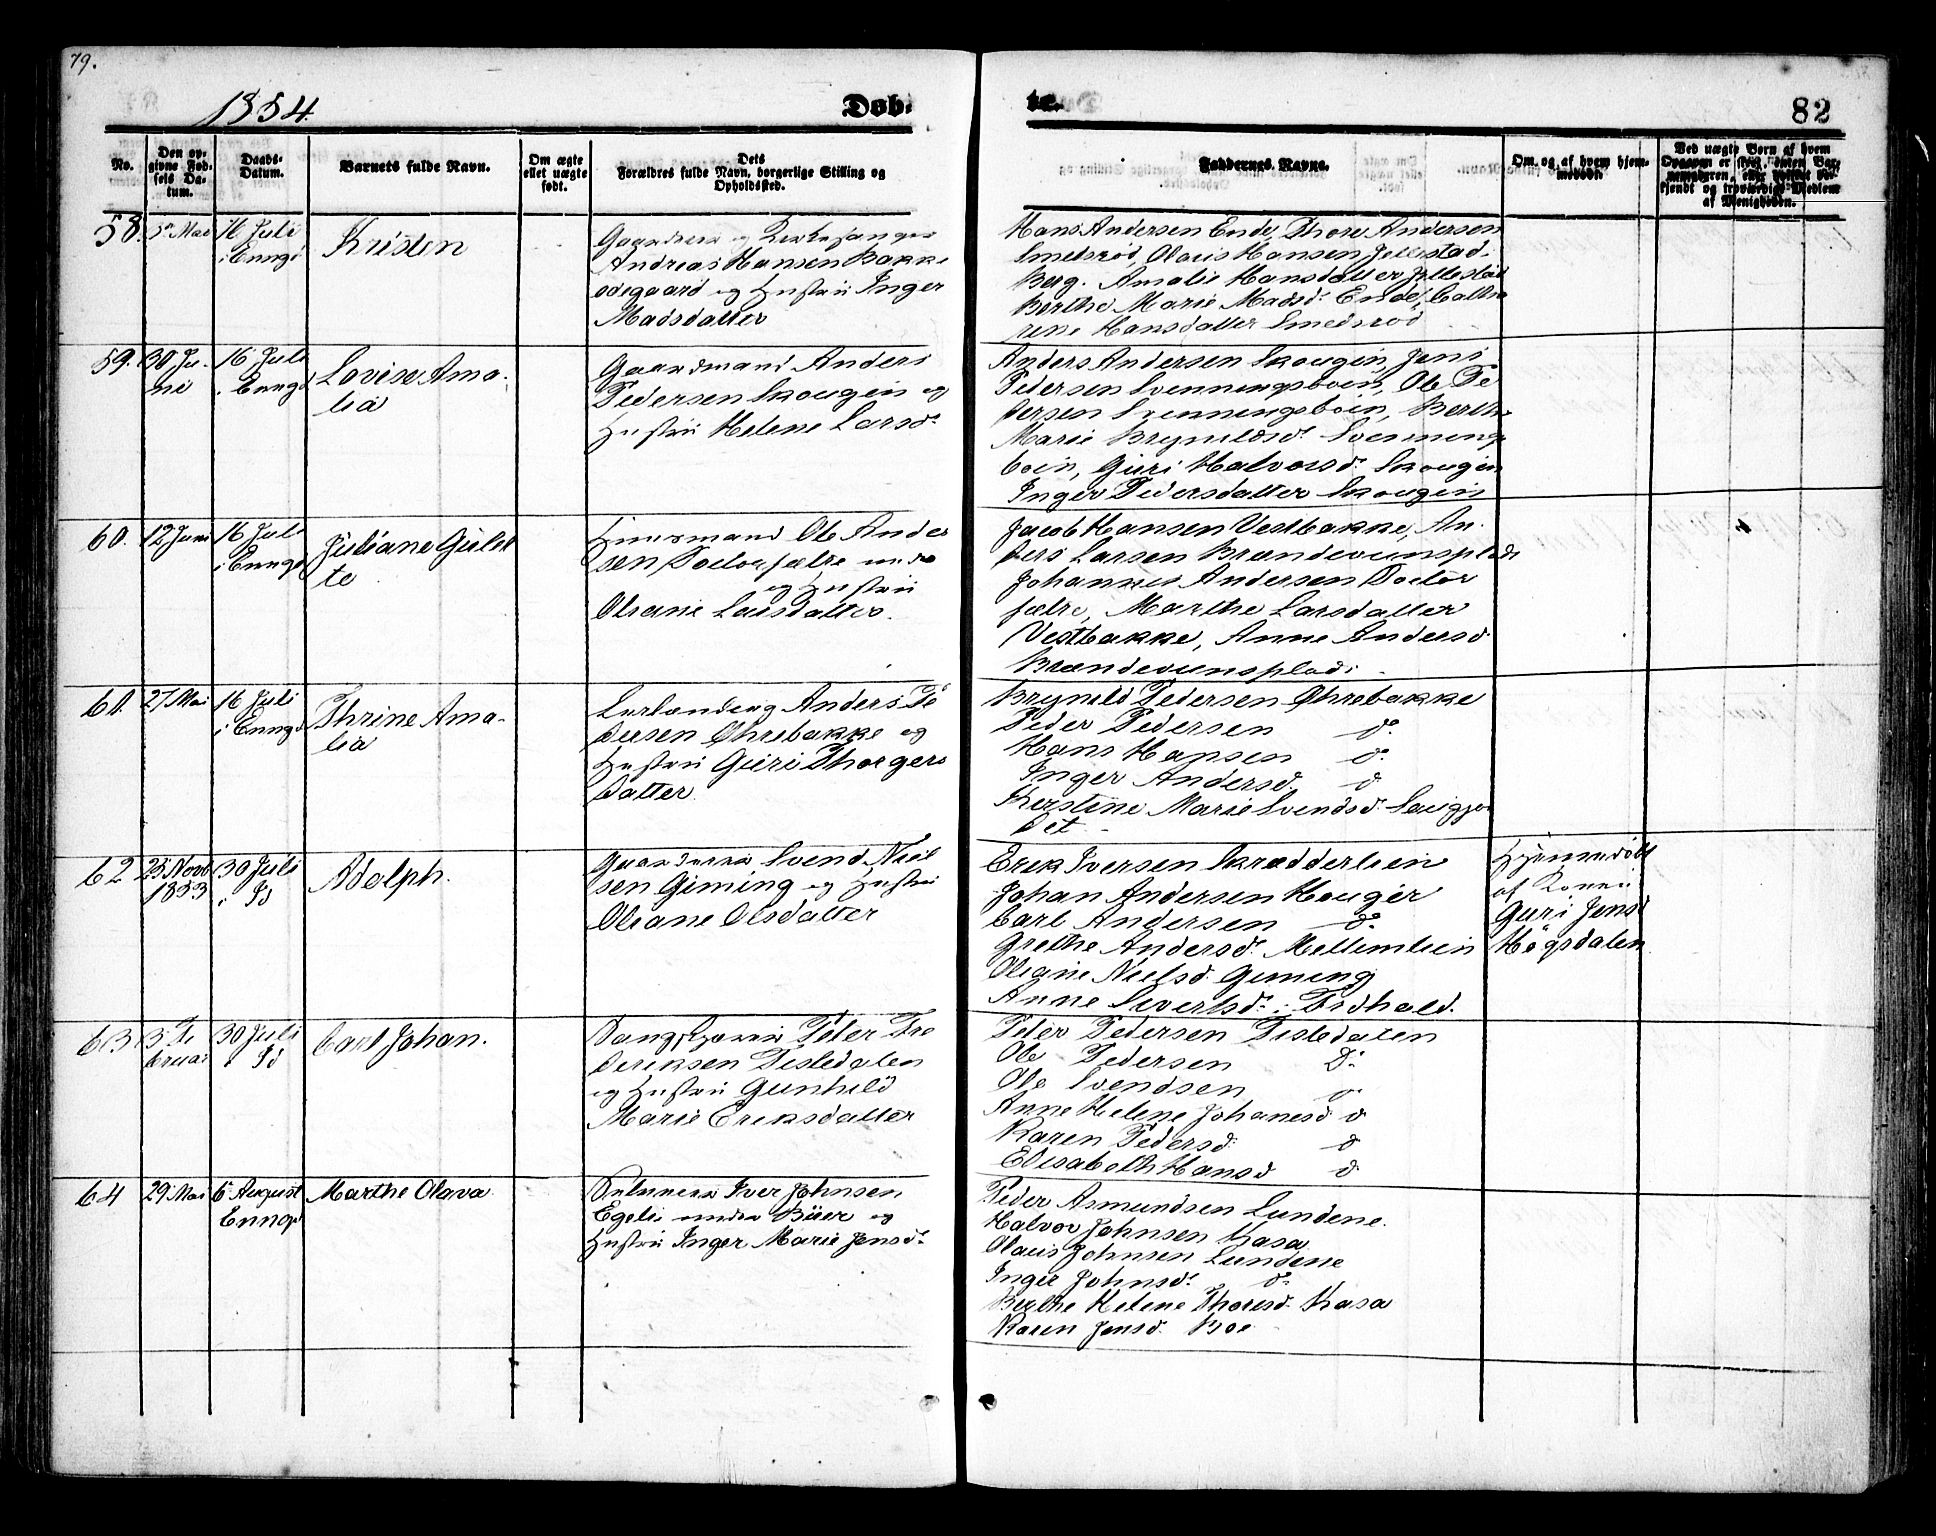 79.
1854.
Døb-
te.
82
No.
Den op-
givne Fød-
sels Da-
tum.
Daabs-
Datum.
Barnets fulde Navn.
Om ægte
eller uægte
født.
Dets
Forældres fulde Navn, borgerlige Stilling og
Opholdssted.
Faddernes Navne.
Om og af hvem hjem-
medøbt.
Ved uægte Børn af hvem
Opgaven er skeet, enten Bar-
nemoderen, eller hvilket be-
kjendt og troværdigt Medlem
af Menigheden.
58.
Mai
16 Juli
i Enngd
Kristen
Gaardmand og Kirkesanger
Andreas Hansen Bakke
ødegaard og Hustru Inger
Madsdatter
Hans Andersen Ende, Thore Andersen
Smedsrød, Olaus Hansen Jellestad
Berg. Amalie Hansdatter Jellestad
Berthe Marie Madsd. Ende, Cath
rine Hansdatter Smedsrød
59.
30 Ju-
ni
16 Juli
i Enngd
Lovise Ama-
lia
Gaardmand Anders
Pedersen Skougen og
Hustru Helene Larsd.
Anders Andersen Skougen, Jens
Pedersen Svenningsboin, Ole Pe
dersen Svenningsboin, Berthe
Marie Brynildsd. Svennings
boin, Guri Halvorsd. Skougen
Inger Pedersdatter Skougen
60.
12 Juni
16 Juli
i Enngd
Juliane Guld
te
Huusmand Ole Ander
sen Doctorfeltre under
og Hustru
Oleane Larsdatter.
Jacob Hansen Vestbakke, An-
ders Larsen Brændevinsplads
Johannes Andersen Doctor
feltre, Marthe Larsdatter
Vestbakke, Anne Andersd.
Brændevinsplads.
61.
27 Mai
16 Juli
i Enngd
Thrine Ama-
lia
Anders Pe
dersen Ohrebakke og
Hustru Guri Thorgers
datter
Brynild Pedersen Ohrebakke
Peder Pedersen do.
Hans Hansen do.
Inger Andersd. do
Kerstine Marie Svendsd.
det
62
25 Novb
1853
30 Juli
i Id
Adolph.
Gaardmand Svend Niel
sen Giming og Hustru
Oleane Olsdatter
Erik Iversen Skrædderlien
Johan Andersen Houger
Carl Andersen do.
Grethe Andersd. Mellemlien
Oleane Nielsd. Giming
Anne Sivertsd. i Fidhald.
Hjemmedøbt
af Konen
Guri Jensd
Høgsdalen
63
3 Fe
bruar
30 Juli
i Id
Carl Johan.
Peter Fre
deriksen Tistedalen
og Hustru Gunhild
Marie Eriksdatter
Peter Pedersen Tistedalen
Ole Pedersen do.
Ole Svendsen do
Anne Helene Johanesd do
Karen Pedersd. do
Elisabeth Hansd do
64
29 Mai
6 August
Enngd
Marthe Olava.
Iver Johnsen
Egelis under Büer og
Hustru Inger Marie Jensd.
Peder Asmundsen Lundene.
Halvor Johnsen Kasa
Olaus Johnsen Lundene
Inger Johnsd. do.
Berthe Helene Thoresd. Kasa
Karen Jensd. Boe